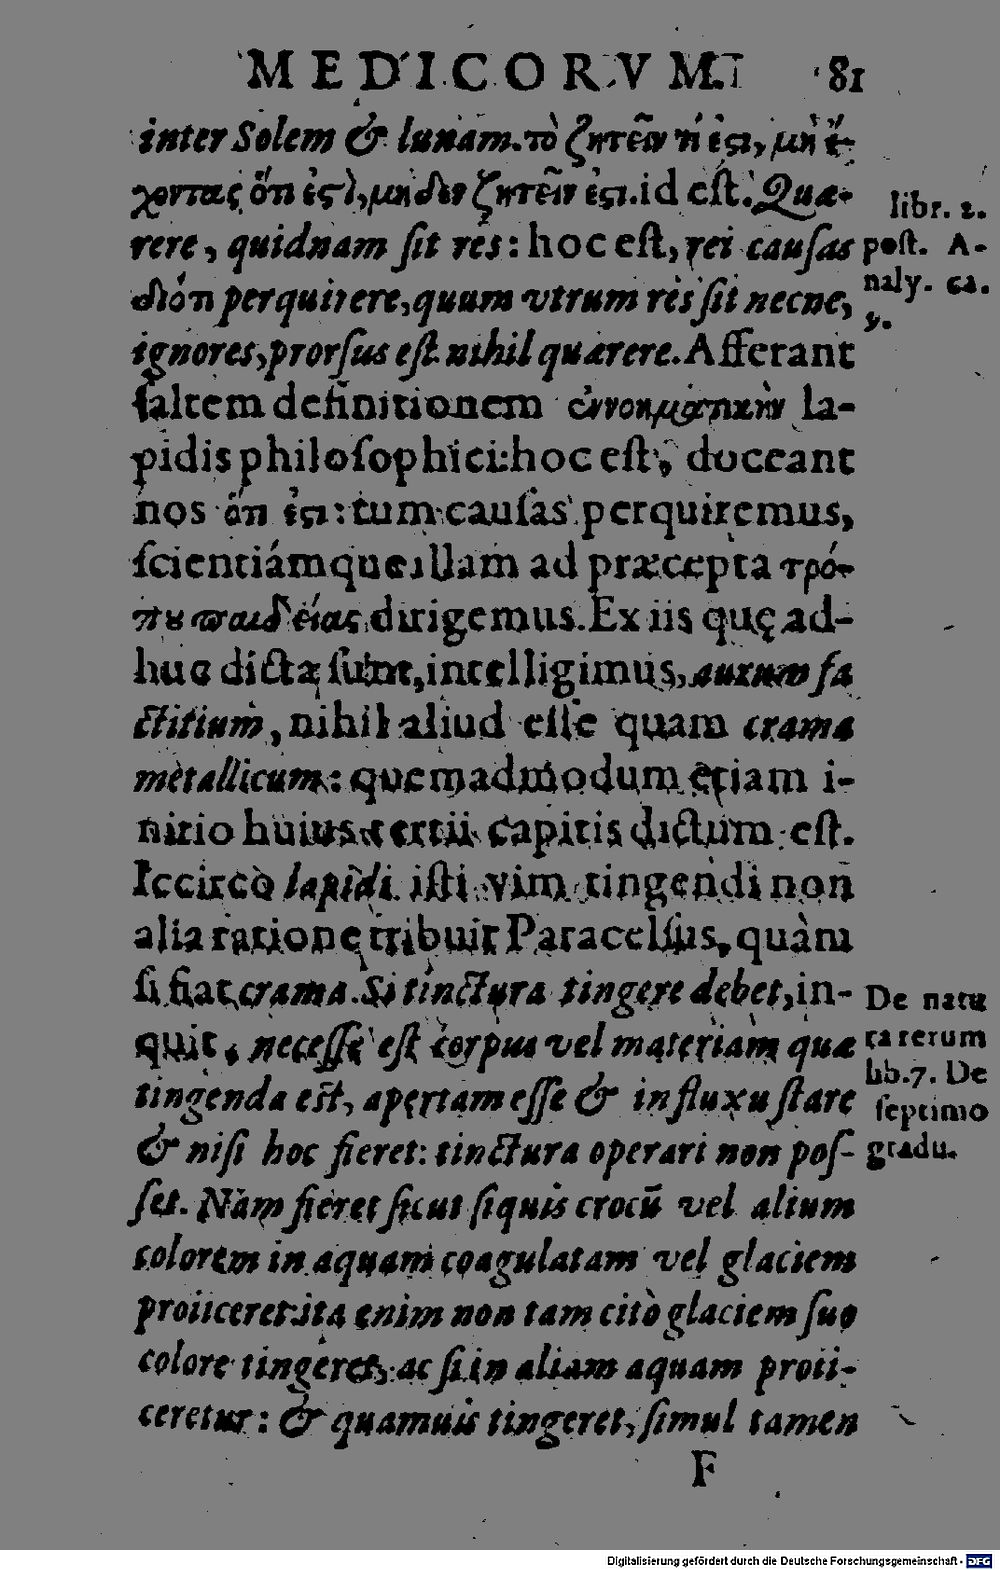 MEDICORVM. 81
inter Solem & lunam. τὸ ζητεῖν τί ἐστι, μὴ ἔ-
χοντας ὅτι ἐστὶ, μηδὲν ζητεῖν ἐστι. id est. Quæ-
rere, quidnam ſit res: hoc eſt, rei cauſas
διότι perquirere, quum vtrum res ſit necne,
ignores, prorſus eſt nihil quærere. Afferant
ſaltem definitionem ἐννοηματικὴν la-
pidis philoſophici: hoc eſt, doceant
nos ὅτι ἐστι: tum cauſas perquiremus,
ſcientiámque illam ad præcepta τρό-
που παιδείας dirigemus. Ex iis quę ad-
huc dicta ſunt, intelligimus, aurum fa
ctitium, nihil aliud eſſe quam crama
metallicum: quemadmodum etiam i-
nitio huius tertii capitis dictum eſt.
Iccirco lapidi iſti vim tingendi non
alia ratione tribuit Paracelſus, quàm
ſi fiat crama. Si tinctura tingere debet, in-
quit, neceſſe eſt corpus vel materiam quæ
tingenda est, apertam eſſe & in fluxu ſtare
& niſi hoc fieret: tinctura operari non poſ-
ſet. Nam fieret ſicut ſiquis crocū vel alium
colorem in aquam coagulatam vel glaciem
proiiceret: ita enim non tam citò glaciem ſuo
colore tingeret, ac ſi in aliam aquam proii-
ceretur: & quamuis tingeret, ſimul tamen
F
libr. 2.
poſt. A-
naly. ca.
De natu
ra rerum
lib. 7. De
ſeptimo
gradu.
Digitalisierung gefördert durch die Deutsche Forschungsgemeinschaft - DFG